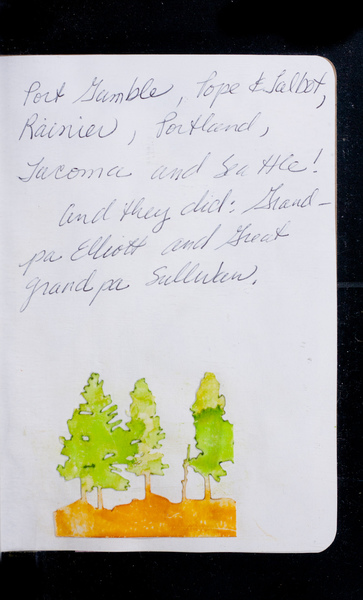 Port Gamble, Pope & Talbot,
Rainier, Portland,
Tacoma and Seattle!
And they did: Grand-
pa Elliott and Great
grandpa